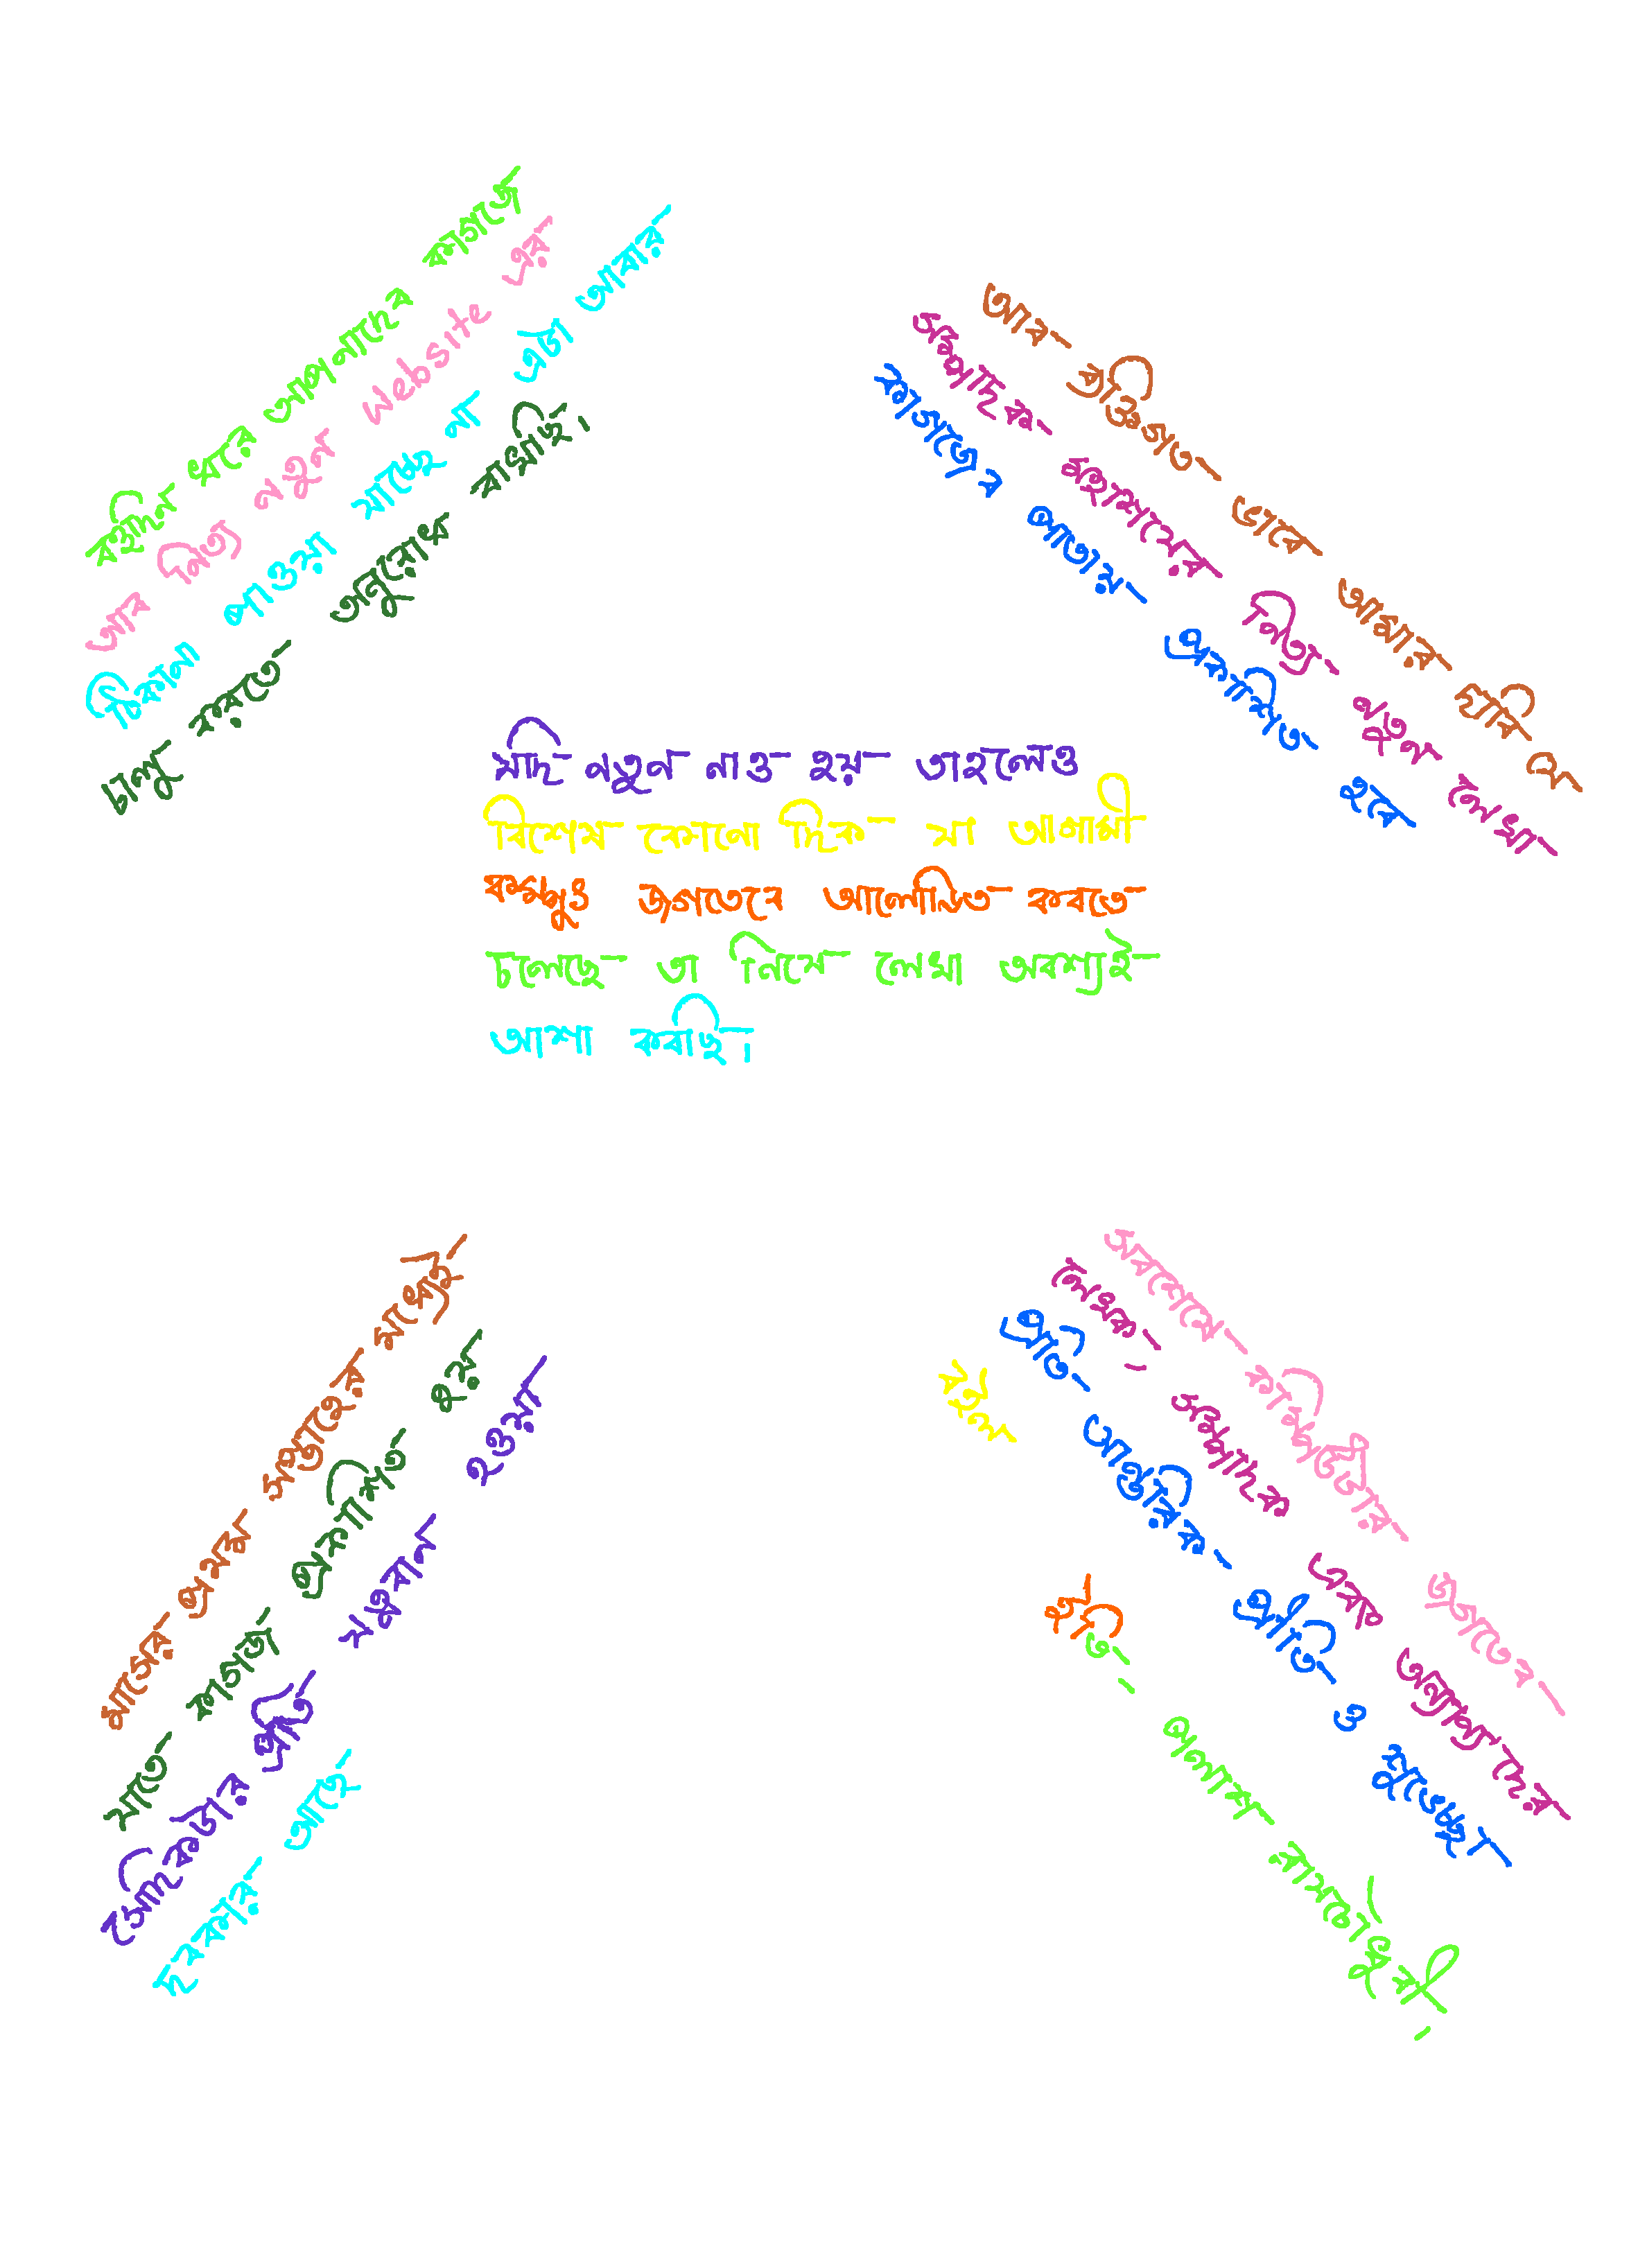 বহুদিন ধরে আপনাদের কাগজে
আর নিত্য নতুন Website এর
ঠিকানা পাওয়া যাচ্ছে না এটা আবার
চালু করতে অনুরোধ রাখছি।
আর ব্যক্তিগত ভাবে আমার দাবি যে
সম্পাদক মহাশয়ের নিত্য নতুন লেখা
কাগজের পাতায় প্রকাশিত হবে
যদি নতুন নাও হয় তাহলেও
বিশেষ কোনো দিক যা আগামী
কম্পুঃ জগতেরে আলোড়িত করতে
চলেছে তা নিয়ে লেখা অবশ্যই
আশা করছি।
মাসের প্রথম সপ্তাহের মধ্যেই
যাতে কাগজ প্রকাশিত হয়
সেদিকটার প্রতি যত্নবান হওয়া
দরকার আছে
অবশেষে কম্পিউটার জগতের
লেখক, সম্পাদক এবং অন্যান্যদের
প্রতি আন্তরিক প্রীতি ও শুভেচ্ছা
রইল
ইতি-
পলাশ রায়চৌধুরী,